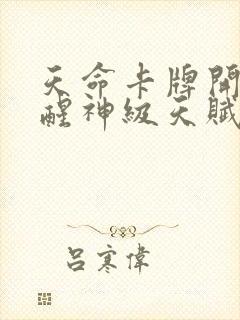 天命卡牌開
醒神級天賦
吕寒偉